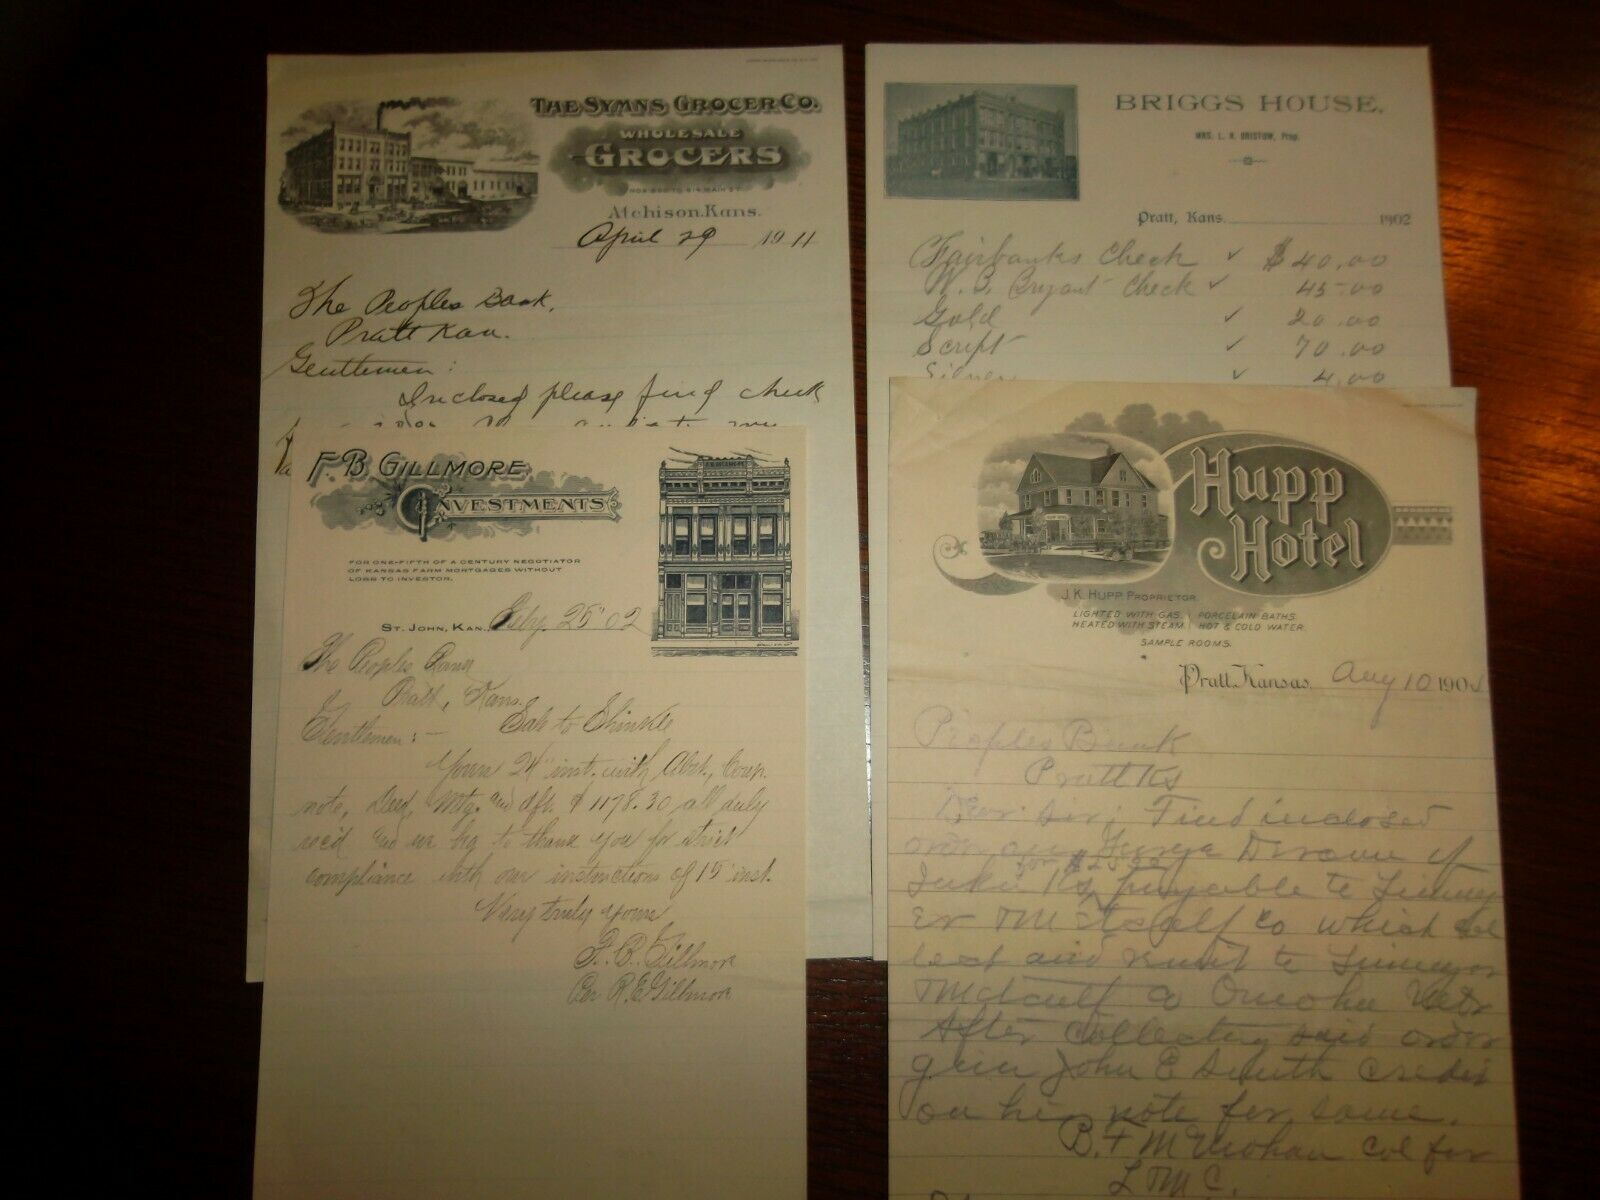 THE SYMNS GROCER CO.
WHOLESALE
GROCERS
Atchison, Kans.
April 29 1911
The Peoples Bank,
Pratt Kan.
Gentlemen:
Inclosed please find check
BRIGGS HOUSE.
MRS. L. R. BRISTOW, Prop.
Pratt, Kans. 1902
Fairbanks Check ✓ $40.00
Check ✓ 45.00
Gold ✓ 20.00
Script ✓ 70.00
✓ 4.00
F. B. GILLMORE
INVESTMENTS
FOR ONE-FIFTH OF A CENTURY NEGOTIATOR
OF KANSAS FARM MORTGAGES WITHOUT
LOSS TO INVESTOR.
ST. JOHN, KAN. Feby. 25" 02
The Peoples Bank
Pratt, Kans.
Gentlemen:- Sale to Shinkle
Yours 24" inst. with Abst., Coup.
note, Deed, Mtg. and dft. $1178.30, all duly
rec'd and we beg to thank you for strict
compliance with our instructions of 15" inst.
Very truly yours
F. B. Gillmore
Per R. E. Gillmore
Hupp
Hotel
J. K. HUPP PROPRIETOR.
LIGHTED WITH GAS. PORCELAIN BATHS.
HEATED WITH STEAM. HOT & COLD WATER.
SAMPLE ROOMS.
Pratt, Kansas, Aug 10 190
Peoples Bank
Pratt Ks
Dear Sir; Find inclosed
order on George of
for $25
Ks payable to
Er Metcalf Co which col
lect and remit to
Metcalf Co Omaha Nebr
After Collecting said order
give John E Smith Credit
on his note for same.
B. F. Col for
L M C.